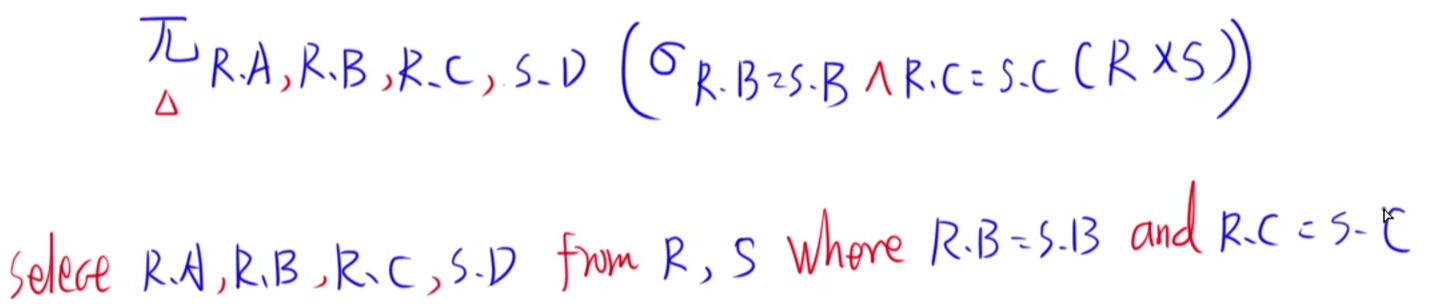 π R.A, R.B, R.C, S.D (σ R.B=S.B ∧ R.C=S.C (R×S))
Δ
selece R.A, R.B, R.C, S.D from R, S where R.B=S.B and R.C=S.C